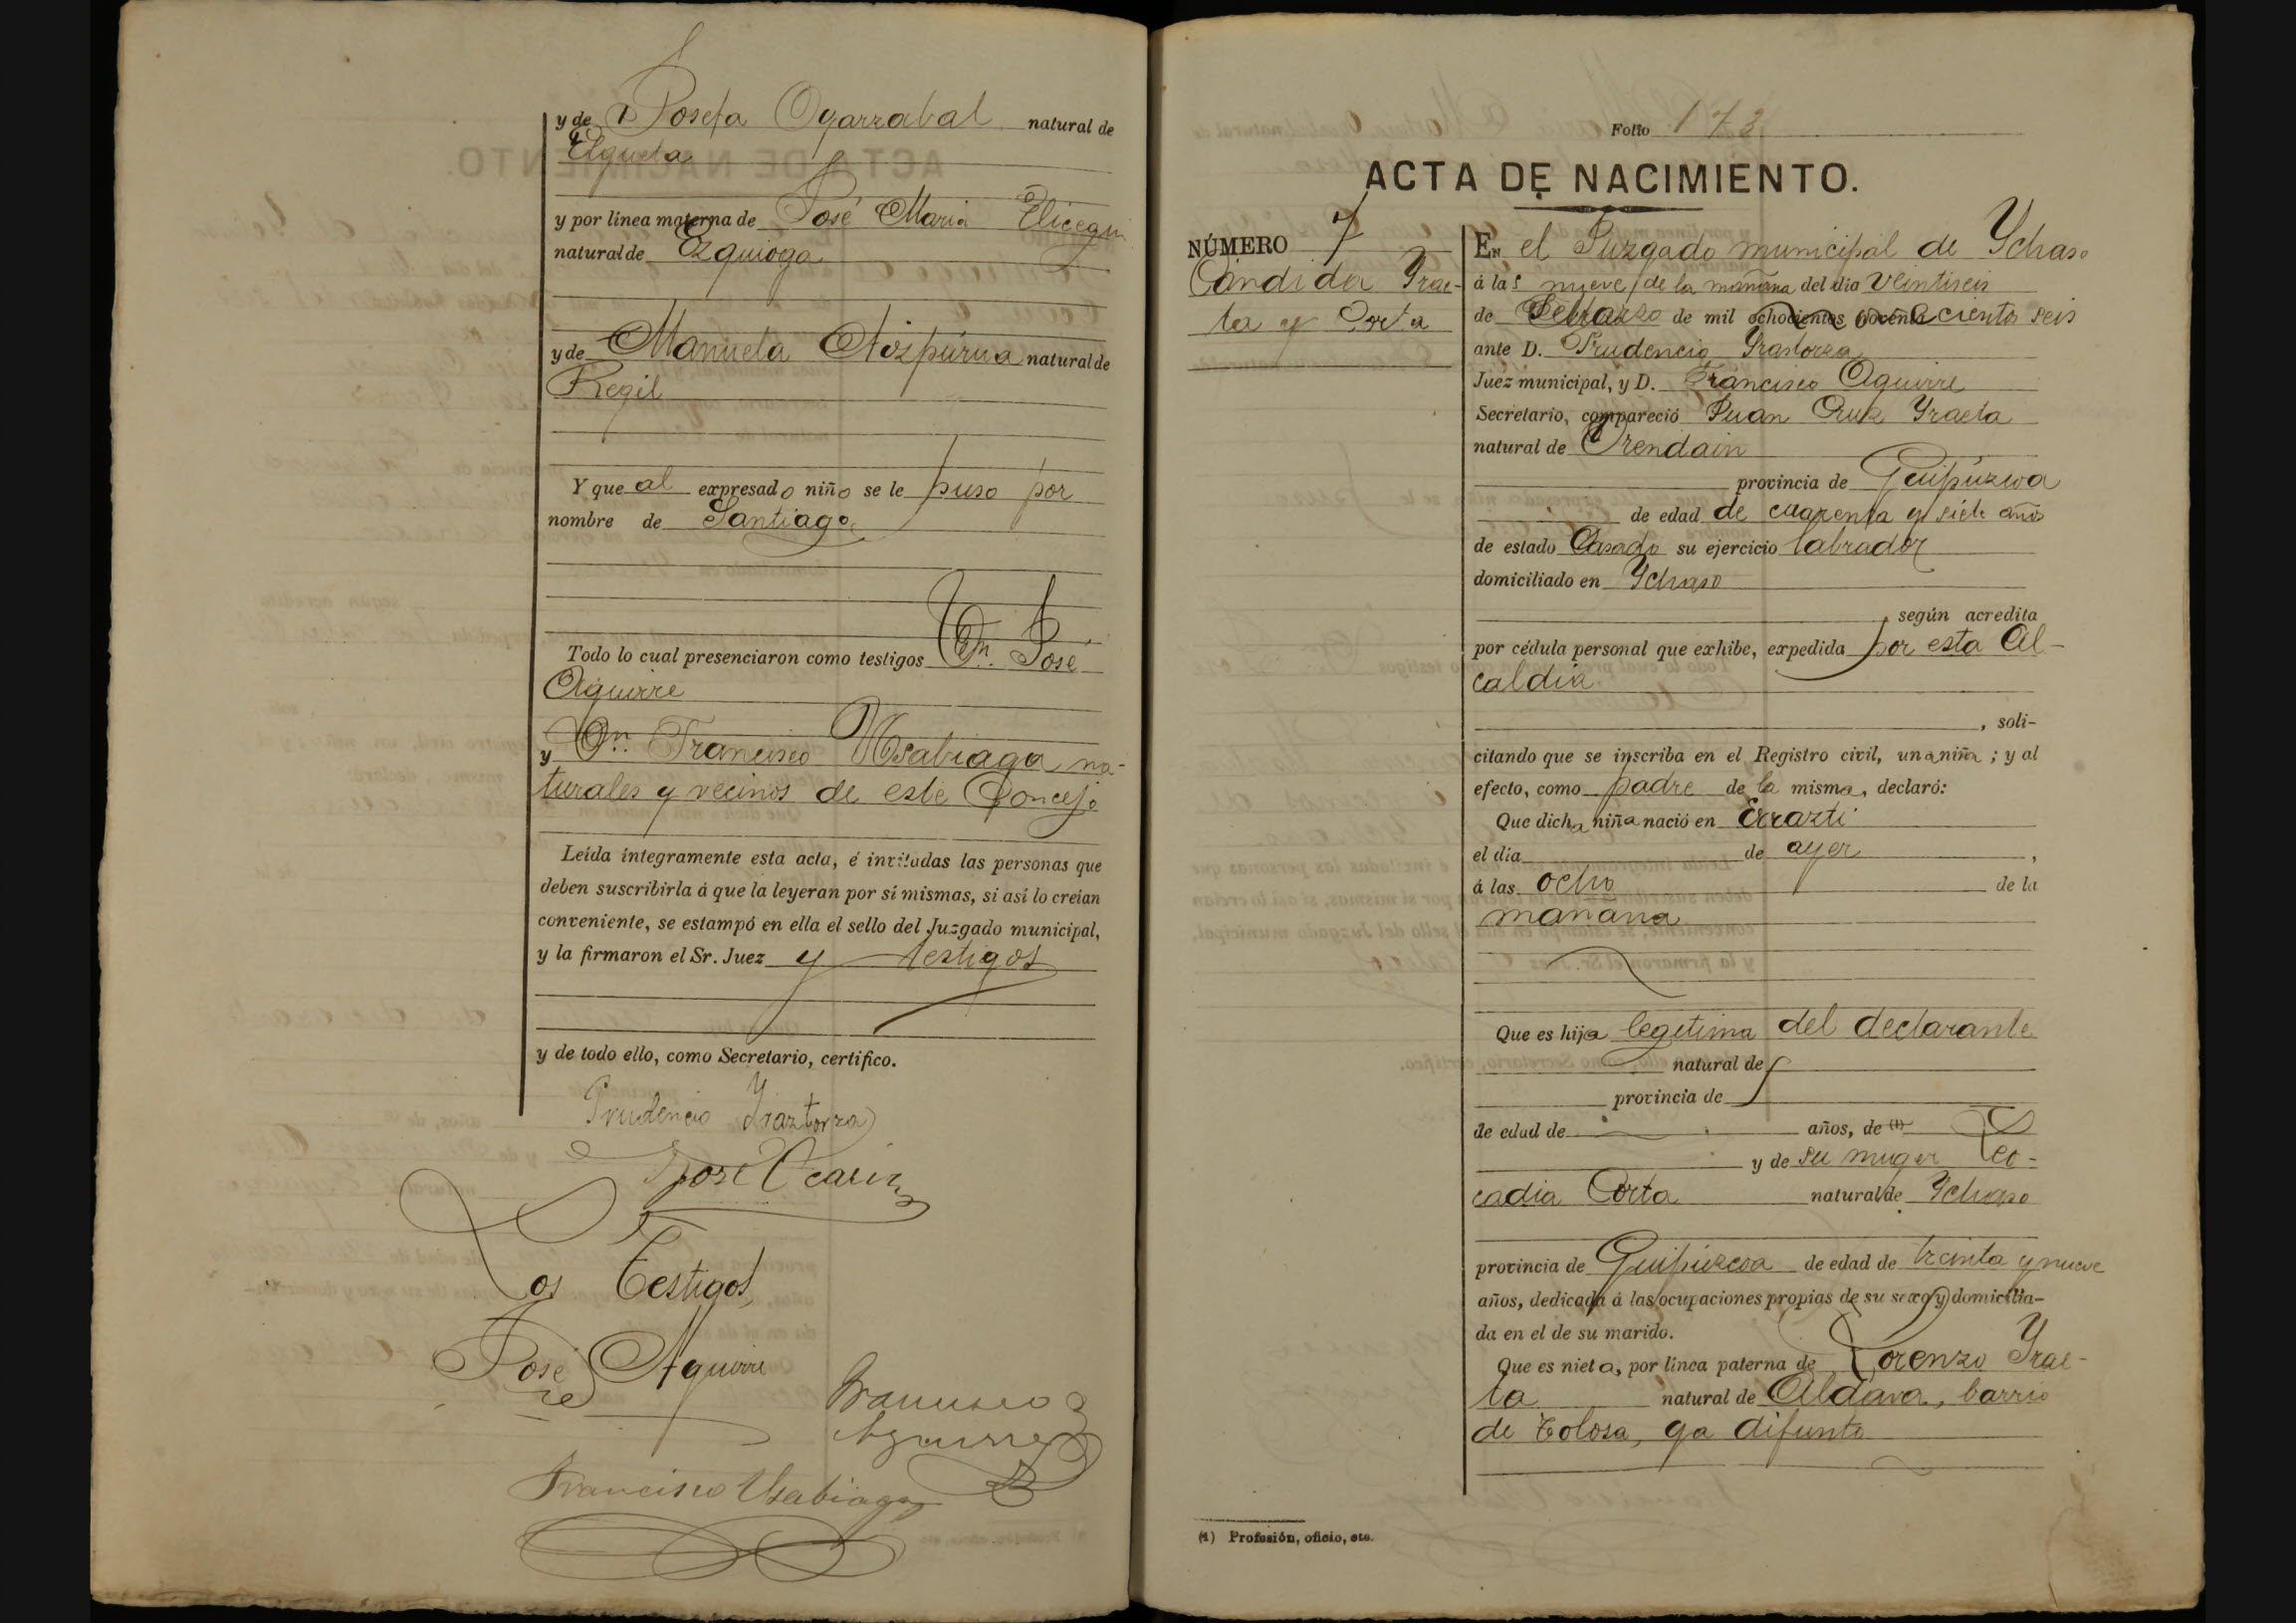 y de Josefa Ogarrabal natural de
Elgueta
y por línea materna de José Maria Elicegui
natural de Ezquioga
y de Manuela Aizpúrua natural de
Regil
Y que al expresado niño se le puso por
nombre de Santiago
Todo lo cual presenciaron como testigos Dn. José
Aguirre
y Dn. Francisco Usabiaga na-
turales y vecinos de este Concejo
Leída íntegramente esta acta, é invitadas las personas que
deben suscribirla á que la leyeran por sí mismas, si así lo creían
conveniente, se estampó en ella el sello del Juzgado municipal,
y la firmaron el Sr. Juez y testigos
y de todo ello, como Secretario, certifico.
Prudencio Yraztorza
José
Los Testigos
José Aguirre
Francisco
Aguirre
Francisco Usabiaga
Folio 173
ACTA DE NACIMIENTO.
NÚMERO 7
Candida Yrae-
ta y Corta
En el Juzgado municipal de Ychaso
á las nueve de la mañana del día veintiseis
de de mil ochocientos novecientos seis
ante D. Prudencio Yraztorza
Juez municipal, y D. Francisco Aguirre
Secretario, compareció Juan Cruz Yraeta
natural de Orendain
provincia de Guipúzcoa
de edad de cuarenta y siete años
de estado Casado su ejercicio labrador
domiciliado en Ychaso
, según acredita
por cédula personal que exhibe, expedida por esta Al-
caldia
, soli-
citando que se inscriba en el Registro civil, una niña; y al
efecto, como padre de la misma, declaró:
Que dicha niña nació en Errazti
el día de ayer,
á las ocho de la
mañana
Que es hija legitima del declarante
natural de
provincia de
de edad de años, de (1)
y de su muger Leo-
cadia Corta natural de Ychaso
provincia de Guipúzcoa de edad de treinta y nueve
años, dedicada á las ocupaciones propias de su sexo y domicilia-
da en el de su marido.
Que es nieta, por línea paterna de Lorenzo Yrae-
ta natural de Aldava, barrio
de Tolosa, ya difunto
(1) Profesión, oficio, etc.